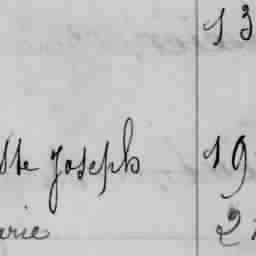 13
tte Joseph 19
arie 2